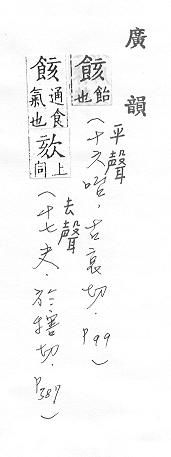 廣韻
䬵飴也
平聲
(十六咍,古哀切.P99)
䬵通食氣也欬上同
去聲
(十七夬.於犗切.P387)